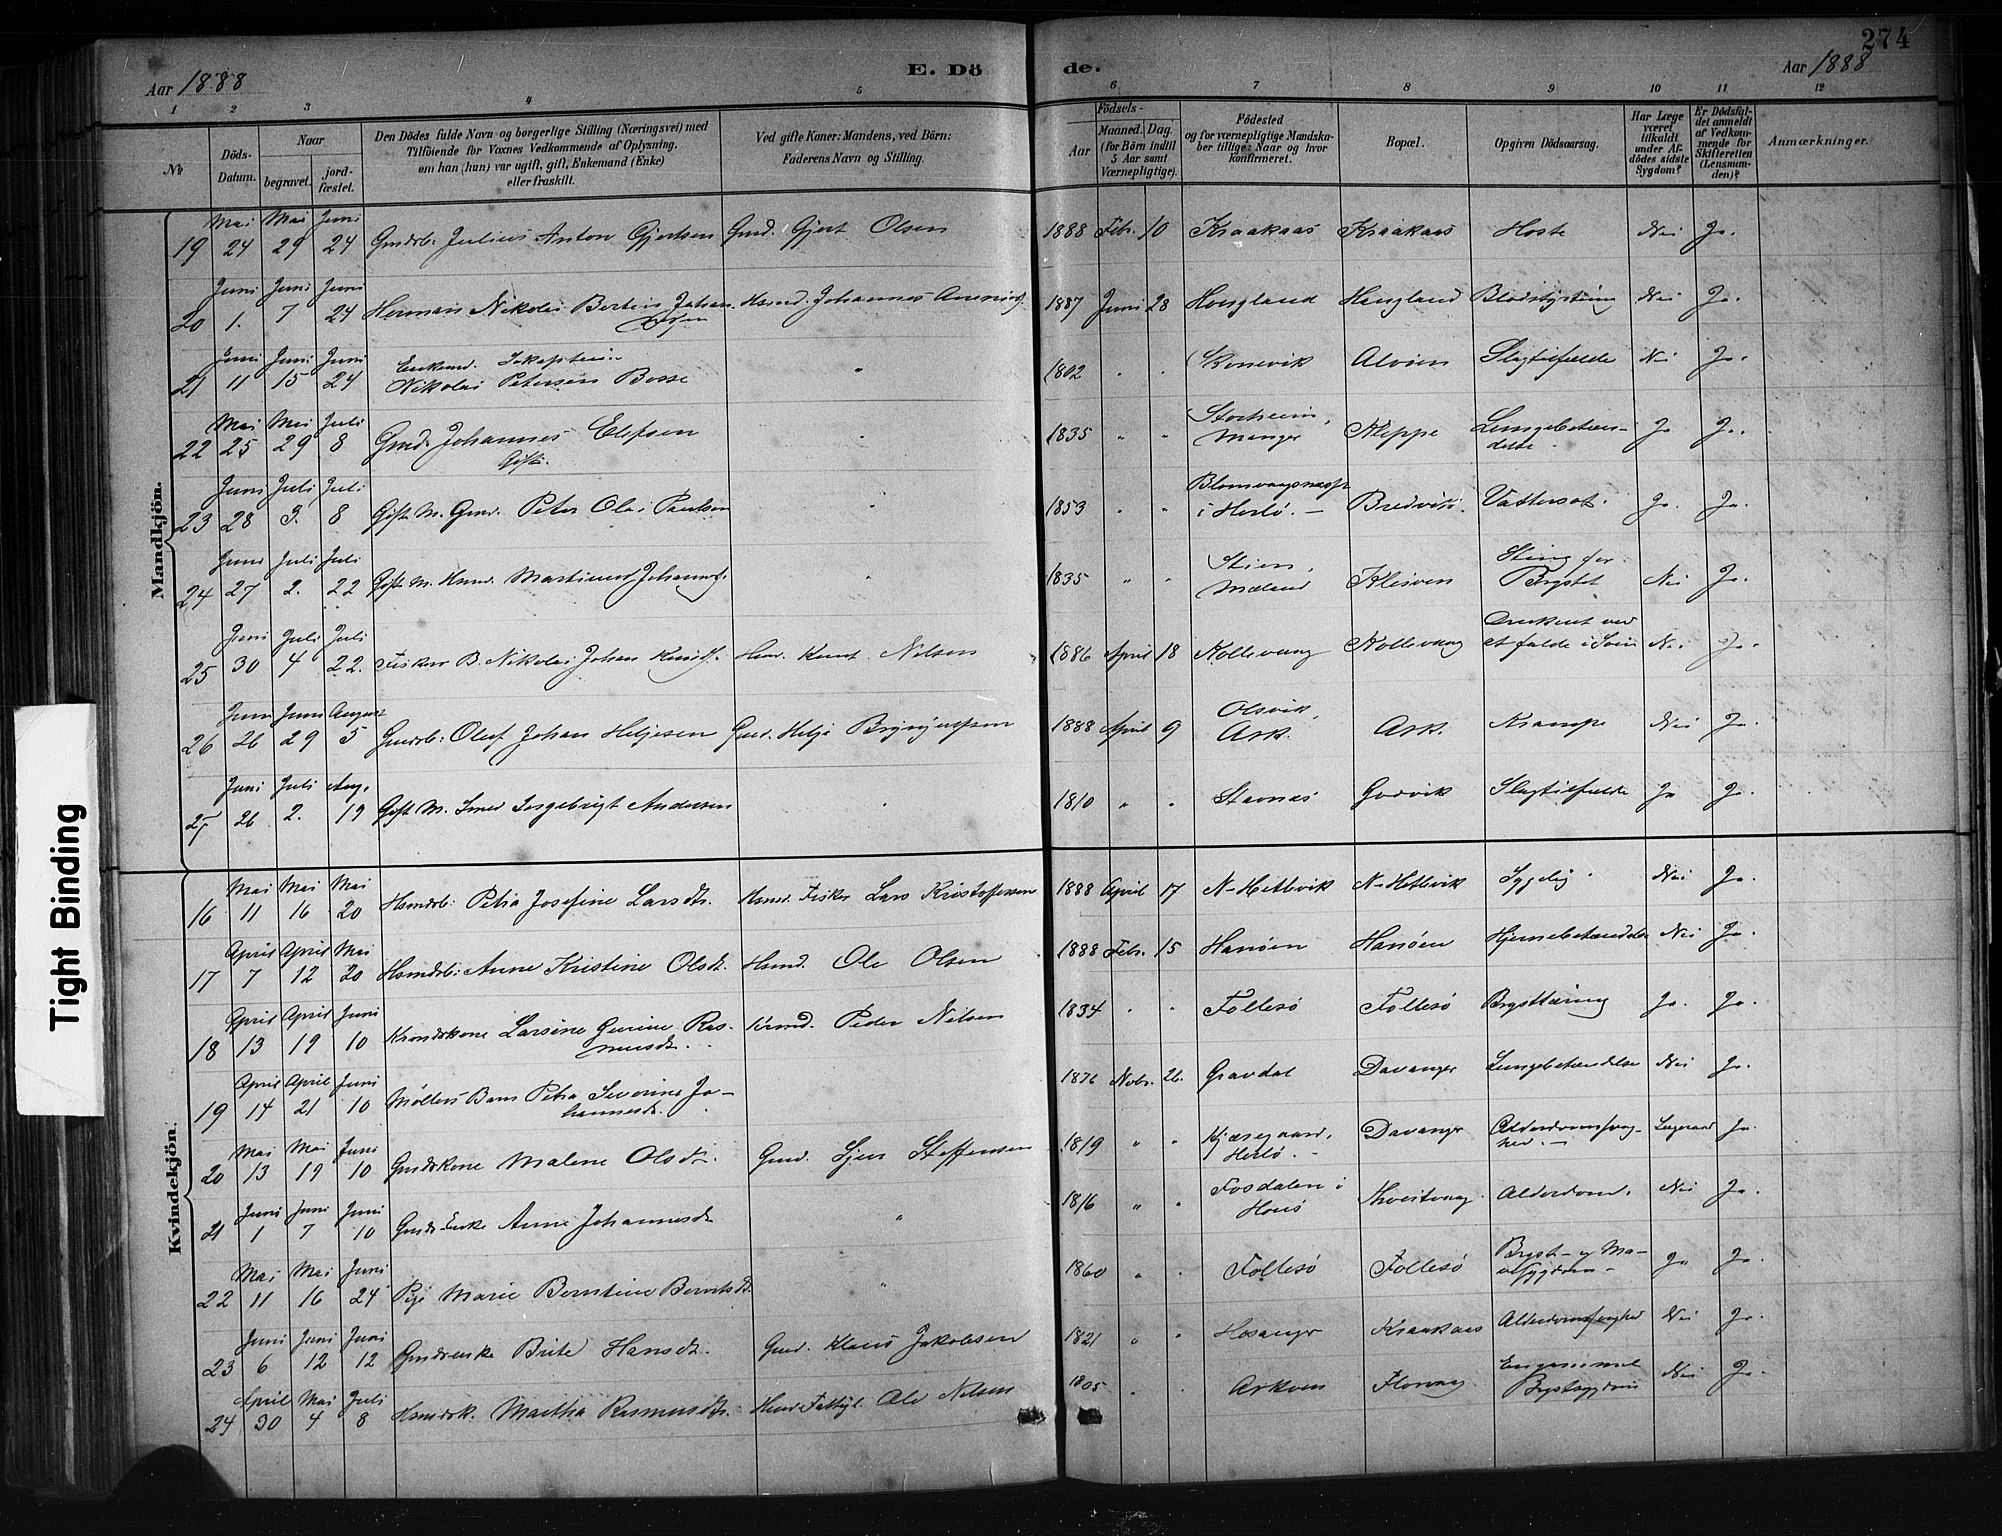 274
Aar 1888 E. Dö de. Aar 1888
1 2 3 4 5 6 7 8 9 10 11 12
№ Döds-Datum. Naar begravet. jord-fæstet. Den Dödes fulde Navn og borgerlige Stilling (Næringsvei) med Tilföiende for Voxnes Vedkommende af Oplysning, om han (hun) var ugift, gift, Enkemand (Enke) eller fraskilt. Ved gifte Koner: Mandens, ved Börn: Faderens Navn og Stilling. Födsels- Aar Maaned. Dag. (for Börn indtil 5 Aar samt Værnepligtige). Födested og for værnepligtige Mandskaber tillige: Naar og hvor konfirmeret. Bopæl. Opgiven Dödsaarsag. Har Læge været tilkaldt under Afdödes sidste Sygdom? Er Dödsfaldet anmeldt af Vedkommende for Skifteretten (Lensmanden)? Anmærkninger.
Mandkjön.
19 Mai 24 Mai 29 Juni 24 Gmdsb: Julius Anton Gjertsen Gmd. Gjert Olsen 1888 Febr. 10 Kraakaas Kraakaas Hoste Nei Ja.
20 Juni 1. Juni 7 Juni 24 Herman Nikolai Bertin Johannesen Hsmd. Johannes 1887 Juni 28 Hougland Hougland Nei Ja.
21 Juni 11 Juni 15 Juni 24 Enkemd. Nikolai Petersen Bosse " 1802 " " Alvöen Slagtilfælde Nei Ja.
22 Mai 25 Mai 29 Juli 8 Gmd. Johannes Elefsen Gift. " 1835 " " Storheim, Manger Kleppe Lungebetændelse Ja Ja.
23 Juni 28 Juli 3. Juli 8 Gift M. Gmd. Peter Olai Paulsen " 1853 " " i Herlö. Bredvik. Vattersot. Ja. Ja.
24 Juni 27 Juli 2. Juli 22 Gift M. Hsmd. Martinus " 1835 " " Mæland Sting for Brystet Nei Ja.
25 Juni 30 Juli 4 Juli 22. Fisker B. Nikolai Johan Knuds. Hsmd. Knut Nilsen 1886 April 18 Kollevaag Kollevaag Druknet ved at falde i Söen Nei Ja.
26 Juni 26 Juni 29 August 5 Gmdsb: Oluf Johan Heljesen Gmd. Helje Brynjulfsen 1888 April 9 Olsvik, Ask. Ask. Krampe Nei Ja.
27 Juni 26 Juli 2. Aug. 19 Gift M. Smed Ingebrigt Andersen " 1810 " " Stavnes Godvik Slagtilfælde Ja Ja.
Kvindekjön.
16 Mai 11 Mai 16 Mai 20 Hsmdsb: Petra Josefine Larsdtr. Hsmd. Fisker Lars Kristoffersen 1888 April 17 N-Hetlevik N-Hetlevik Sygelig. Nei Ja.
17 April 7 April 12 Mai 20 Hsmdsb: Anne Kristine Olsdt. Hsmd. Ole Olsen 1888 Febr. 15 Hanöen Hanöen Hjernebetændelse Nei Ja.
18 April 13 April 19 Juni 10 Larsine Gurine Rasmusdt. Peder Nilsen 1834 " " Follesö Follesö Brysttæring Ja. Ja.
19 April 14 April 21 Juni 10 Möllers Barn Petra Severine Johannesdt. 1876 Novbr. 26. Gravdal Davanger Lungebetændelse Nei Ja.
20 Mai 13 Mai 19 Juni 10 Gmdskone Malene Olsdt. Gmd. Steffensen 1819 " " Kjærgaard, Herlö. Davanger Alderdomssvaghed. Ja.
21 Juni 1 Juni 7 Juni 10 Gmds Enke Anne Johannesdt " 1816 " " Fosdalen i Alderdom. Nei Ja.
22 Mai 11 Mai 16 Juni 24 Pige Marie Berntine Berntsdt. " 1860 " " Follesö Follesö Bryst- og Mavesygdom Ja Ja.
23 Juni 6 Juni 12 Juni 12 Gmdsenke Brite Hansdt. Gmd. Klaus Jakobsen 1821 " " Hosanger Kraakaas Alderdomssvaghed Nei Ja.
24 April 30 Mai 4 Juli 8 Hsmdsk. Martha Rasmusdtr. Ole Nilsen 1805 " " Askven Florvaag En gammel Brystsygdom Nei Ja.
Tight Binding